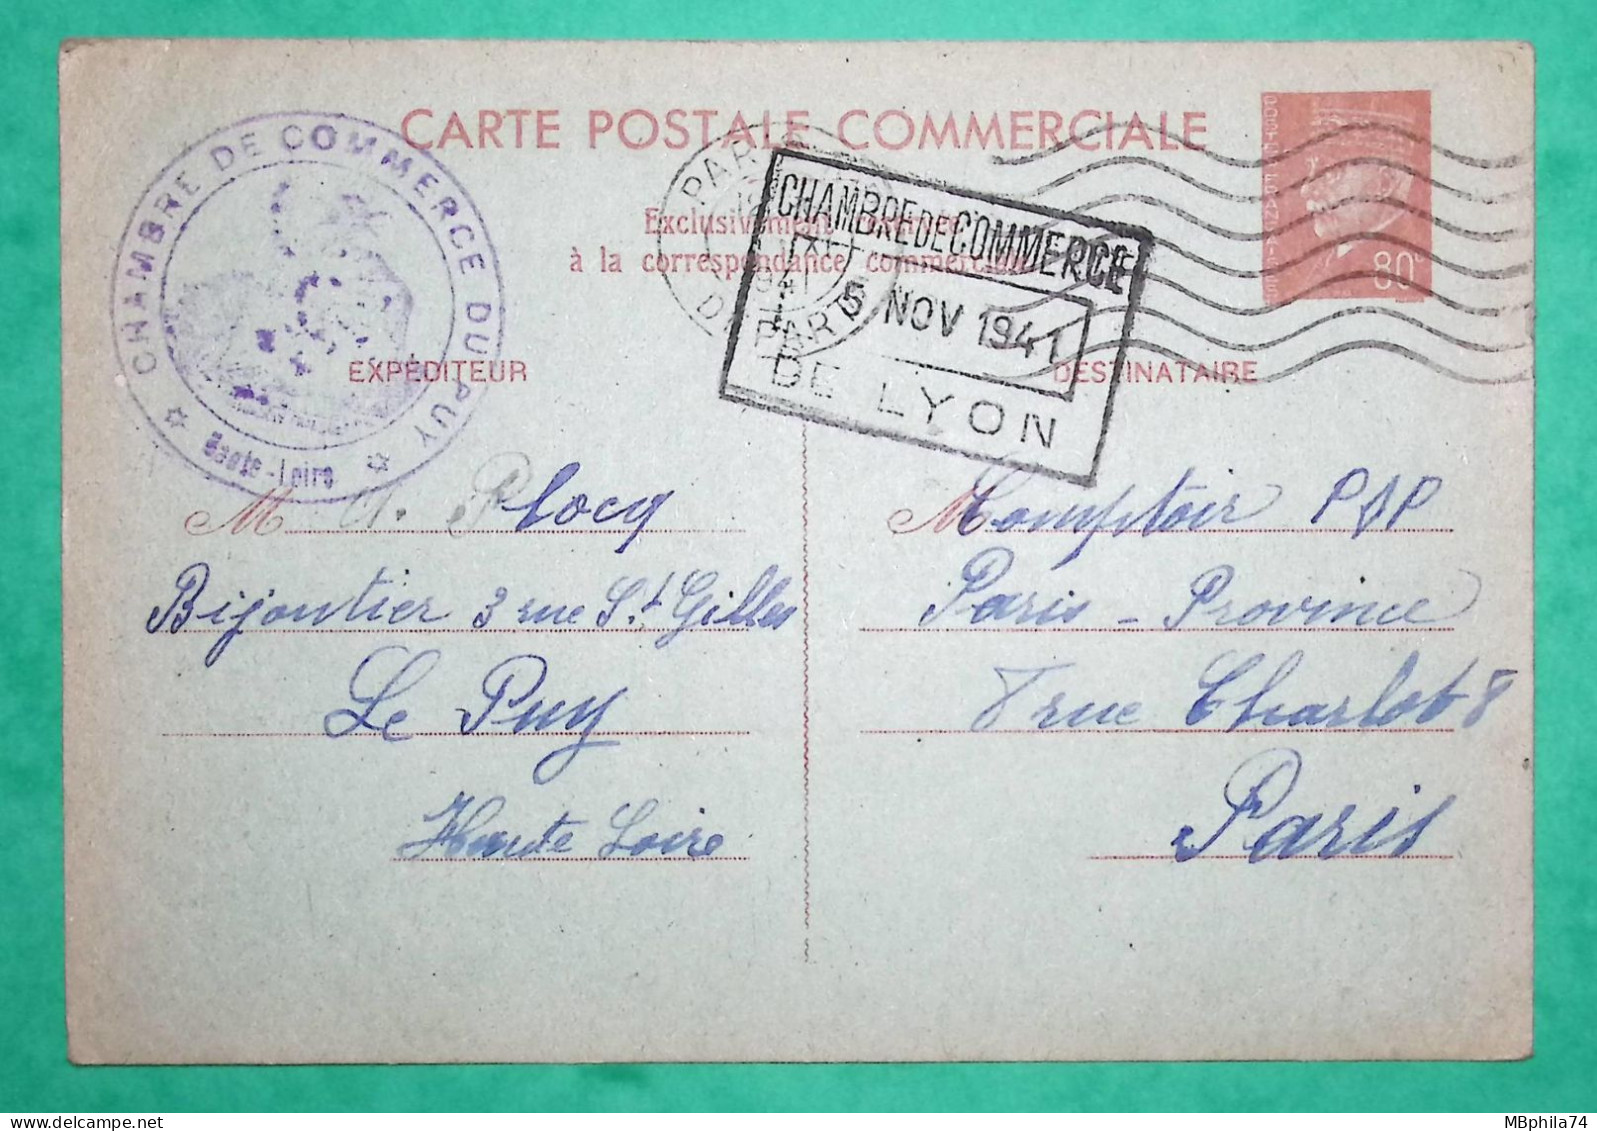 CARTE POSTALE COMMERCIALE
Exclusivement réservée
à la correspondance commerciale
CHAMBRE DE COMMERCE DU PUY
Haute-Loire
PARIS
1941
PARIS
CHAMBRE DE COMMERCE
5 NOV 1941
DE LYON
80c
EXPÉDITEUR
M Plocq
Bijoutier 3 rue St Gilles
Le Puy
Haute Loire
DESTINATAIRE
M Comptoir P&P
Paris - Province
8 rue Charlot 8
Paris
MBphila74